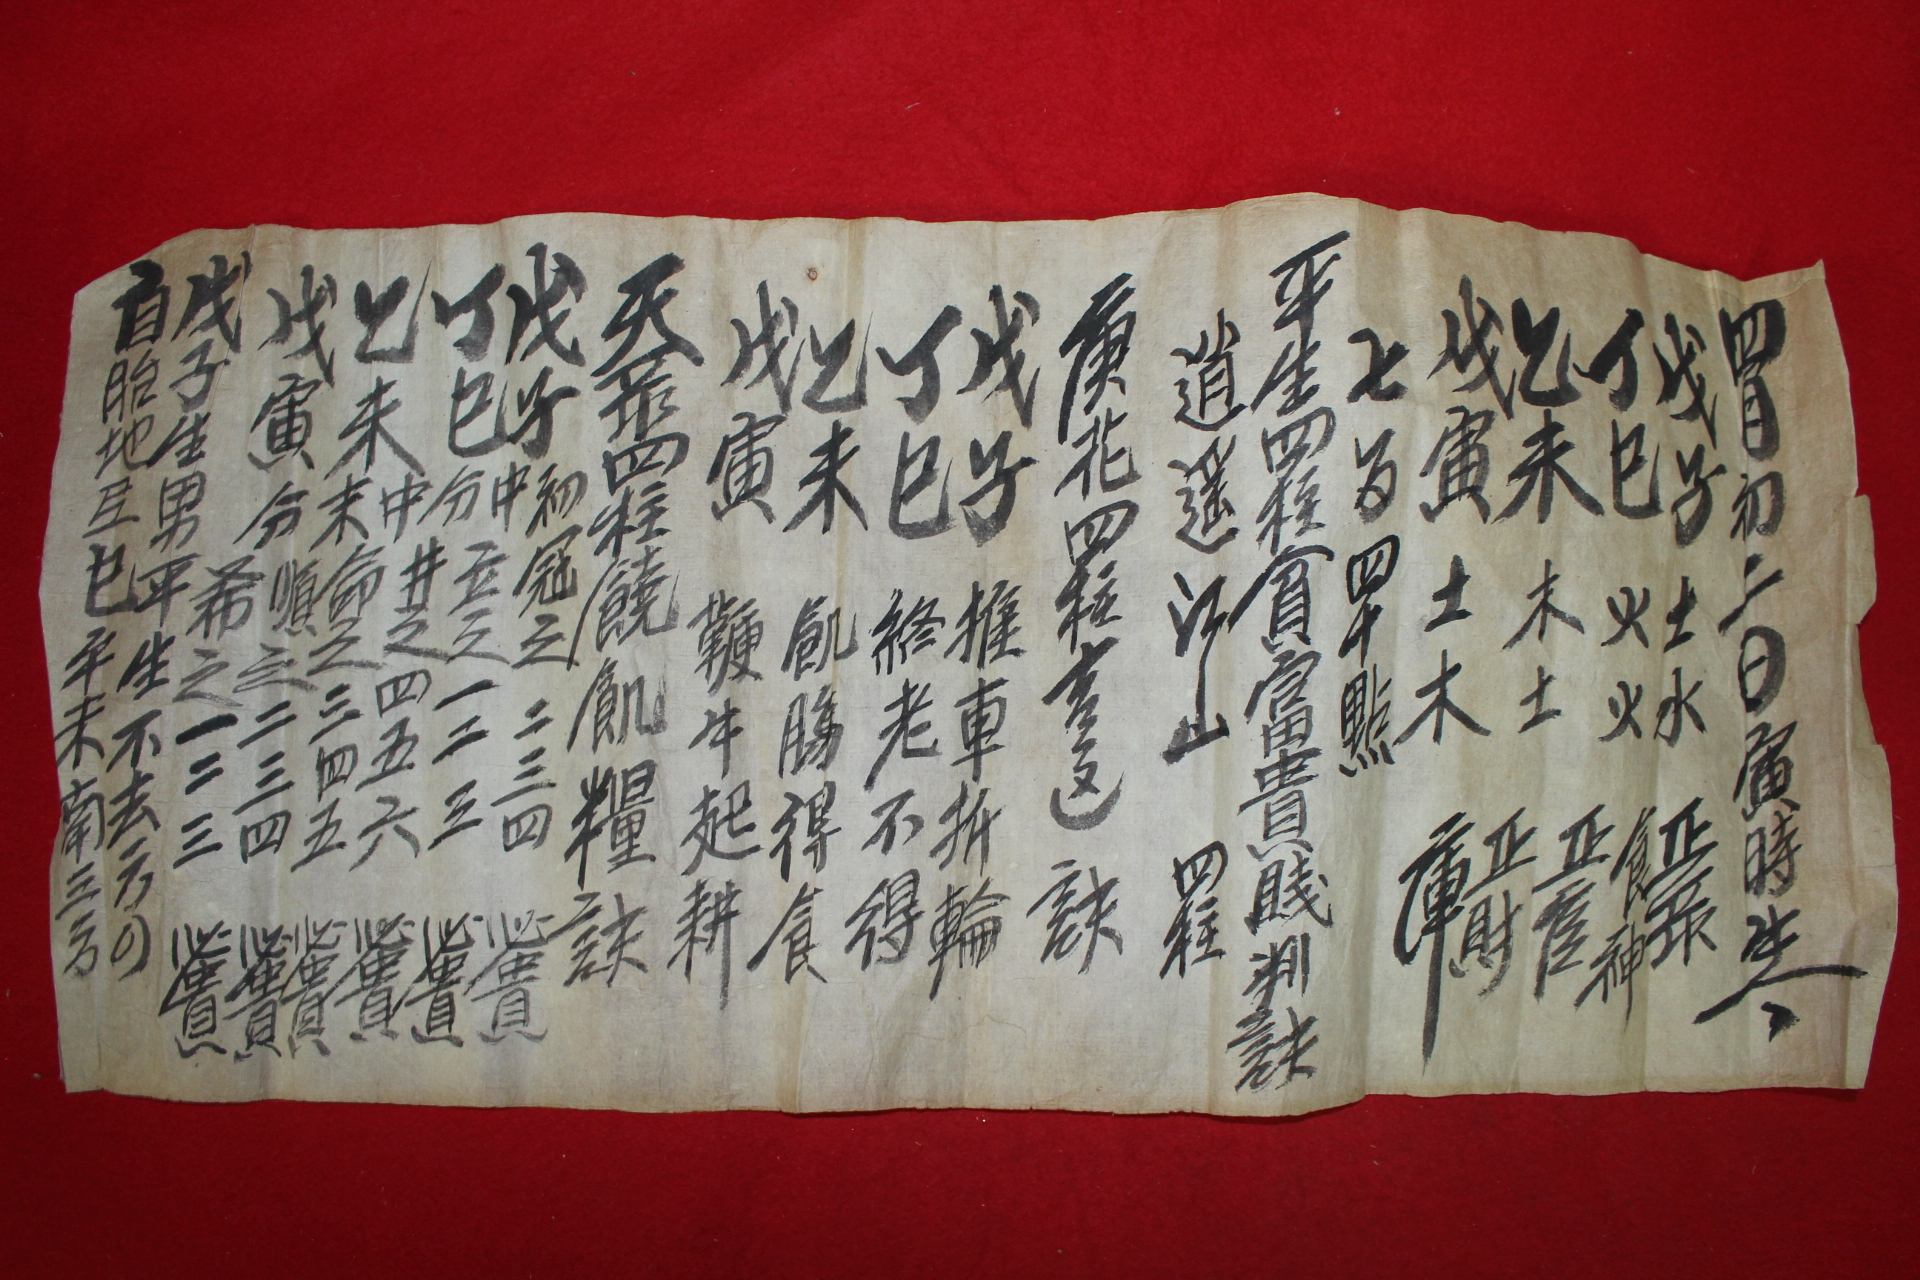 四月初二日寅時生
戊子 土水 正
丁巳 火火 食神
乙未 木土 正官
戊寅 土木 正財
七 四十點
平生四柱貧富貴賤判訣
逍遥江山 四柱
庚花四柱 訣
戊子 推車折輪
丁巳 終老不得
乙未 飢腸得食
戊寅 鞭牛起耕
四柱饒飢糧訣
戊子 初冠之 二三四
丁巳 中分 之 一二三
乙未 中井之 四五六
末命之 三四五
戊寅 分順之 二三四
希之 一二三
戊子生男平生不去方
胎地 巳午未南三方